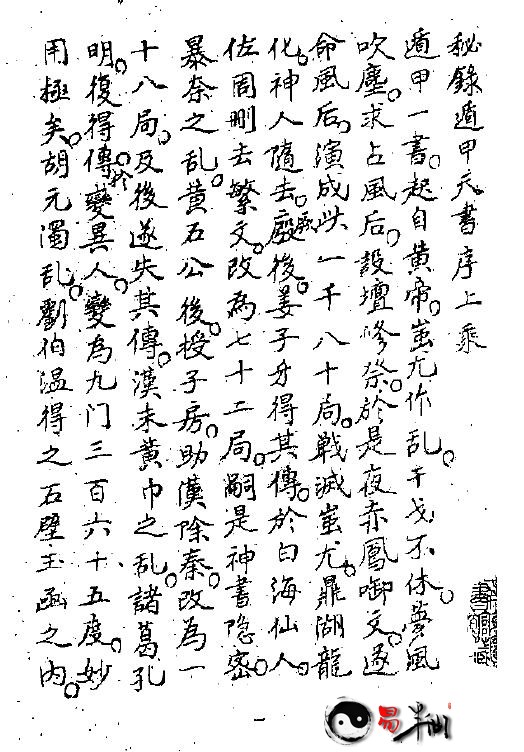 秘錄遁甲天書序上乘
遁甲一書。起自黃帝。蚩尤作乱。干戈不休。夢風
吹塵。求占風后。設壇修祭。於是夜赤鳳啣文。遂
命風后。演成此一千八十局。戰滅蚩尤。鼎湖龍
化。神人隨去。厥後姜子牙得其傳。於白海仙人。
佐周刪去繁文。改為七十二局。嗣是神書隐密。
暴秦之乱。黃石公後。授子房。助漢除秦。改為一
十八局。及後遂失其傳。漢末黃巾之乱。諸葛孔
明。復得傳於變異人。變為九门三百六十五度。妙
用極矣。胡元濁乱。劉伯温得之石壁玉函之内。
一
易半仙